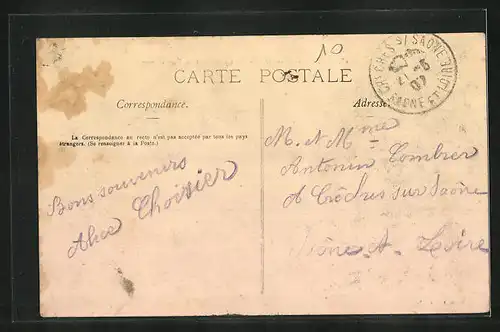 10
CARTE POSTALE
CRÊCHES S/ SAÔNE
SAÔNE ET LOIRE
Correspondance.
Adresse
La Correspondance au recto n'est pas acceptée par tous les pays
étrangers. (Se renseigner à la Poste.)
Bons souvenirs
Alice Choisier
M. et Mme
Antonin Combier
A Crêches sur Saône
Saône-et-Loire